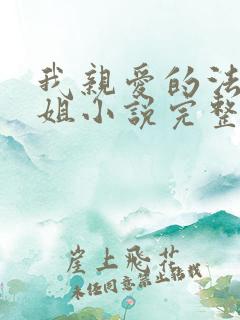 我親愛的法
姐小說完整
崖上飛花
未经同意禁止转载